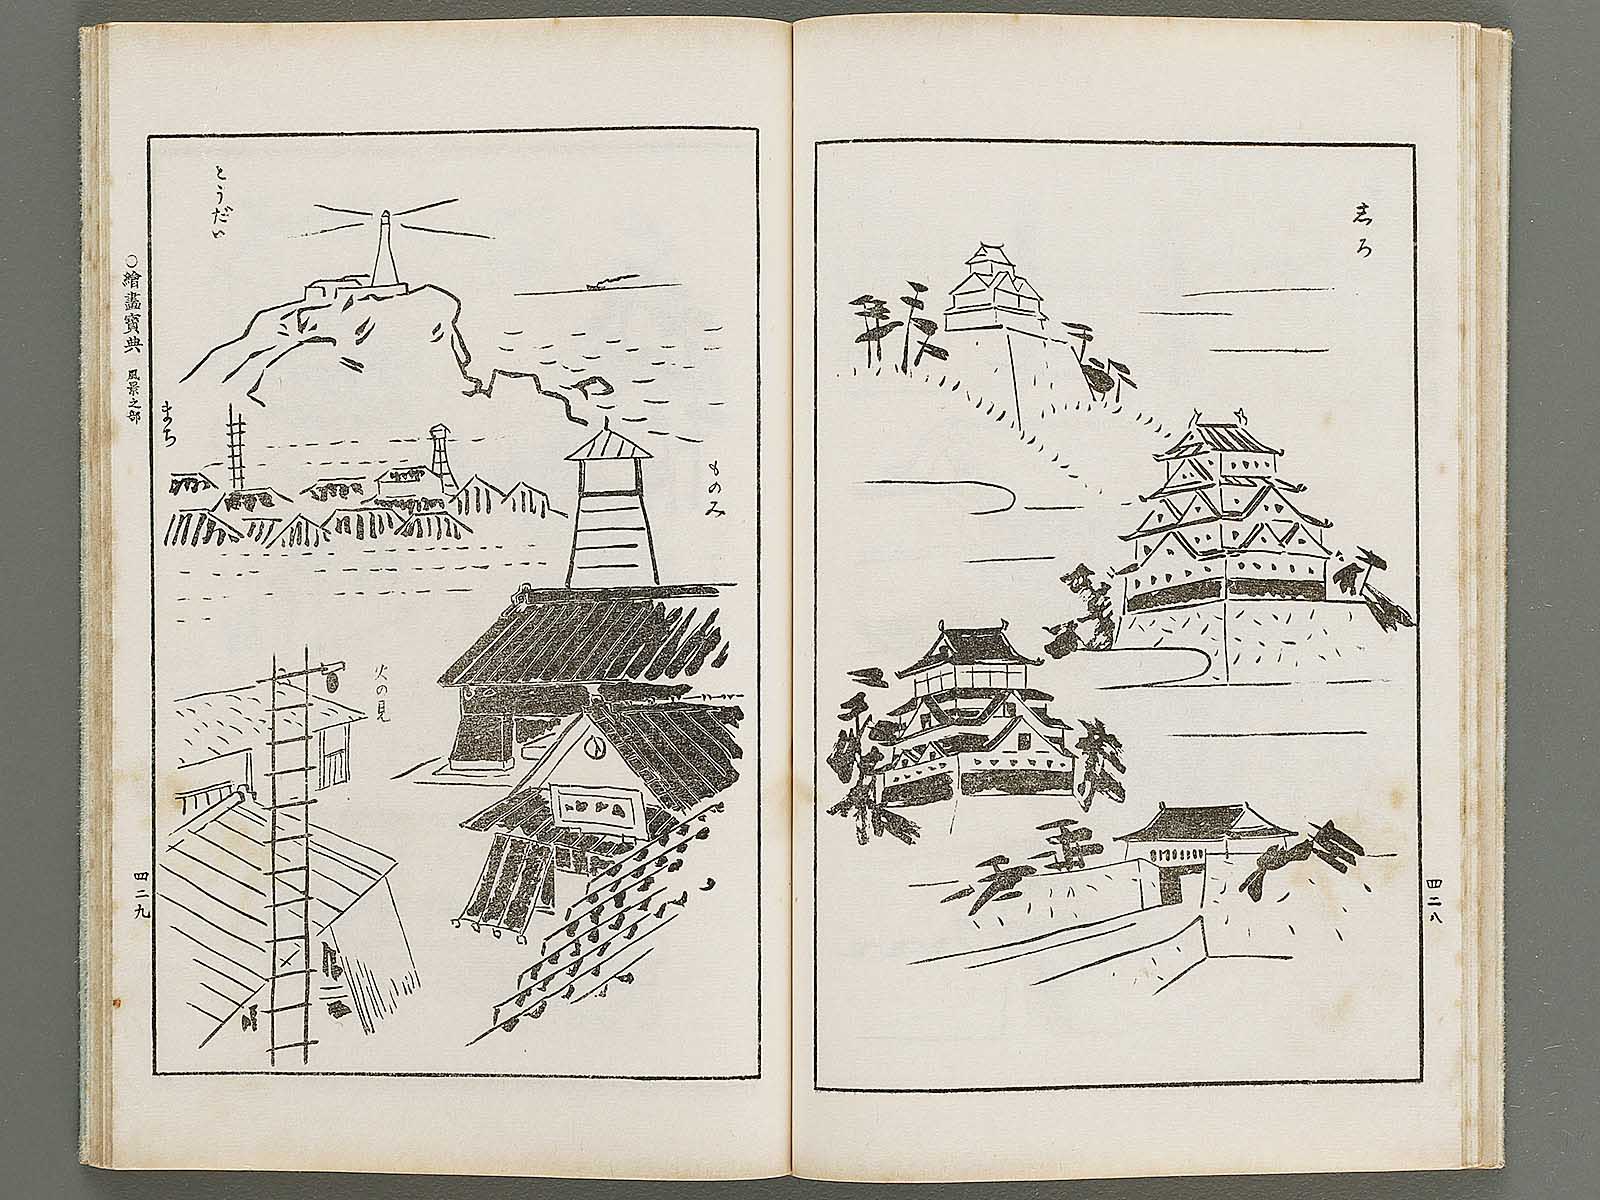 志ろ
四二八
ものみ
火の見
とうだい
まち
○繪畫寶典 風景之部
四二九